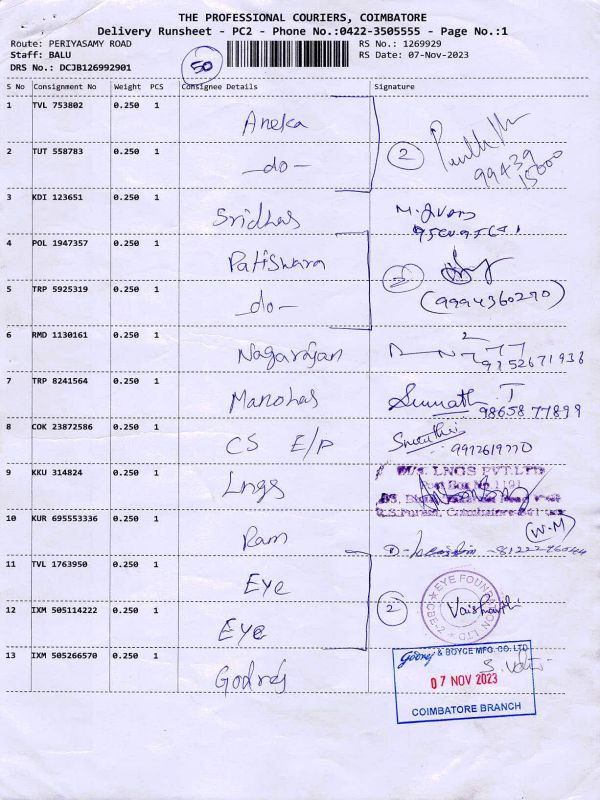 THE PROFESSIONAL COURIERS, COIMBATORE
Delivery Runsheet - PC2 - Phone No.:0422-3505555 - Page No.:1
Route: PERIYASAMY ROAD RS No.: 1269929
Staff: BALU 50 RS Date: 07-Nov-2023
DRS No.: DCJB126992901
S No Consignment No Weight PCS Consignee Details Signature
1 TVL 753802 0.250 1 Aneka
2 TUT 558783 0.250 1 -do- 2 99439
15000
3 KDI 123651 0.250 1 Sridhas
4 POL 1947357 0.250 1 Patiswara 2
5 TRP 5925319 0.250 1 -do- (9994360270)
6 RMD 1130161 0.250 1 Nagarajan 9152671936
7 TRP 8241564 0.250 1 Manohas T 98658 77899
8 COK 23872586 0.250 1 CS E/P
9 KKU 314824 0.250 1 Lngs M/s. LNGS PVT.LTD
10 KUR 695553336 0.250 1 Ram (W-M)
11 TVL 1763950 0.250 1 Eye EYE
12 IXM 505114222 0.250 1 Eye 2 CBE-2
13 IXM 505266570 0.250 1 Godrej Godrej & BOYCE MFG. CO. LTD
07 NOV 2023
COIMBATORE BRANCH